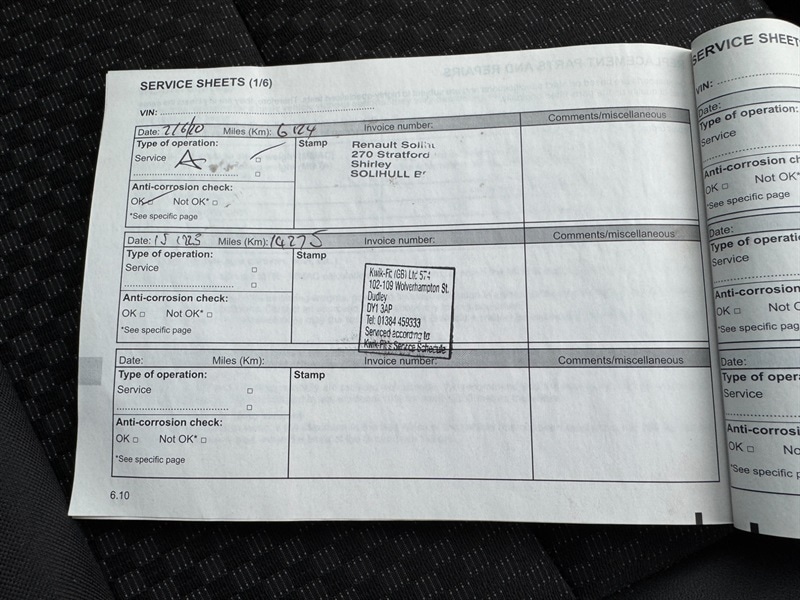 SERVICE SHEETS (1/6)
VIN:
Date: 2/6/20 Miles (Km): 6124 Invoice number: Comments/miscellaneous
Type of operation: Stamp
Service A
Renault
270 Stratford
Shirley
SOLIHULL
Anti-corrosion check:
OK Not OK*
*See specific page
Date: Miles (Km): 14275 Invoice number: Comments/miscellaneous
Type of operation: Stamp
Service
Kwik-Fit (GB) Ltd 574
102-109 Wolverhampton St.
Dudley
DY1 3AP
Tel: 01384 459333
Serviced according to
Kwik-Fit's Service Schedule
Anti-corrosion check:
OK Not OK*
*See specific page
Date: Miles (Km): Invoice number: Comments/miscellaneous
Type of operation: Stamp
Service
Anti-corrosion check:
OK Not OK*
*See specific page
6.10
SERVICE
VIN:
Date:
Type of
Service
Anti-corrosion
OK Not OK*
*See specific page
Date:
Type of
Service
OK
*See specific
Date:
Type of
Service
OK
*See specific